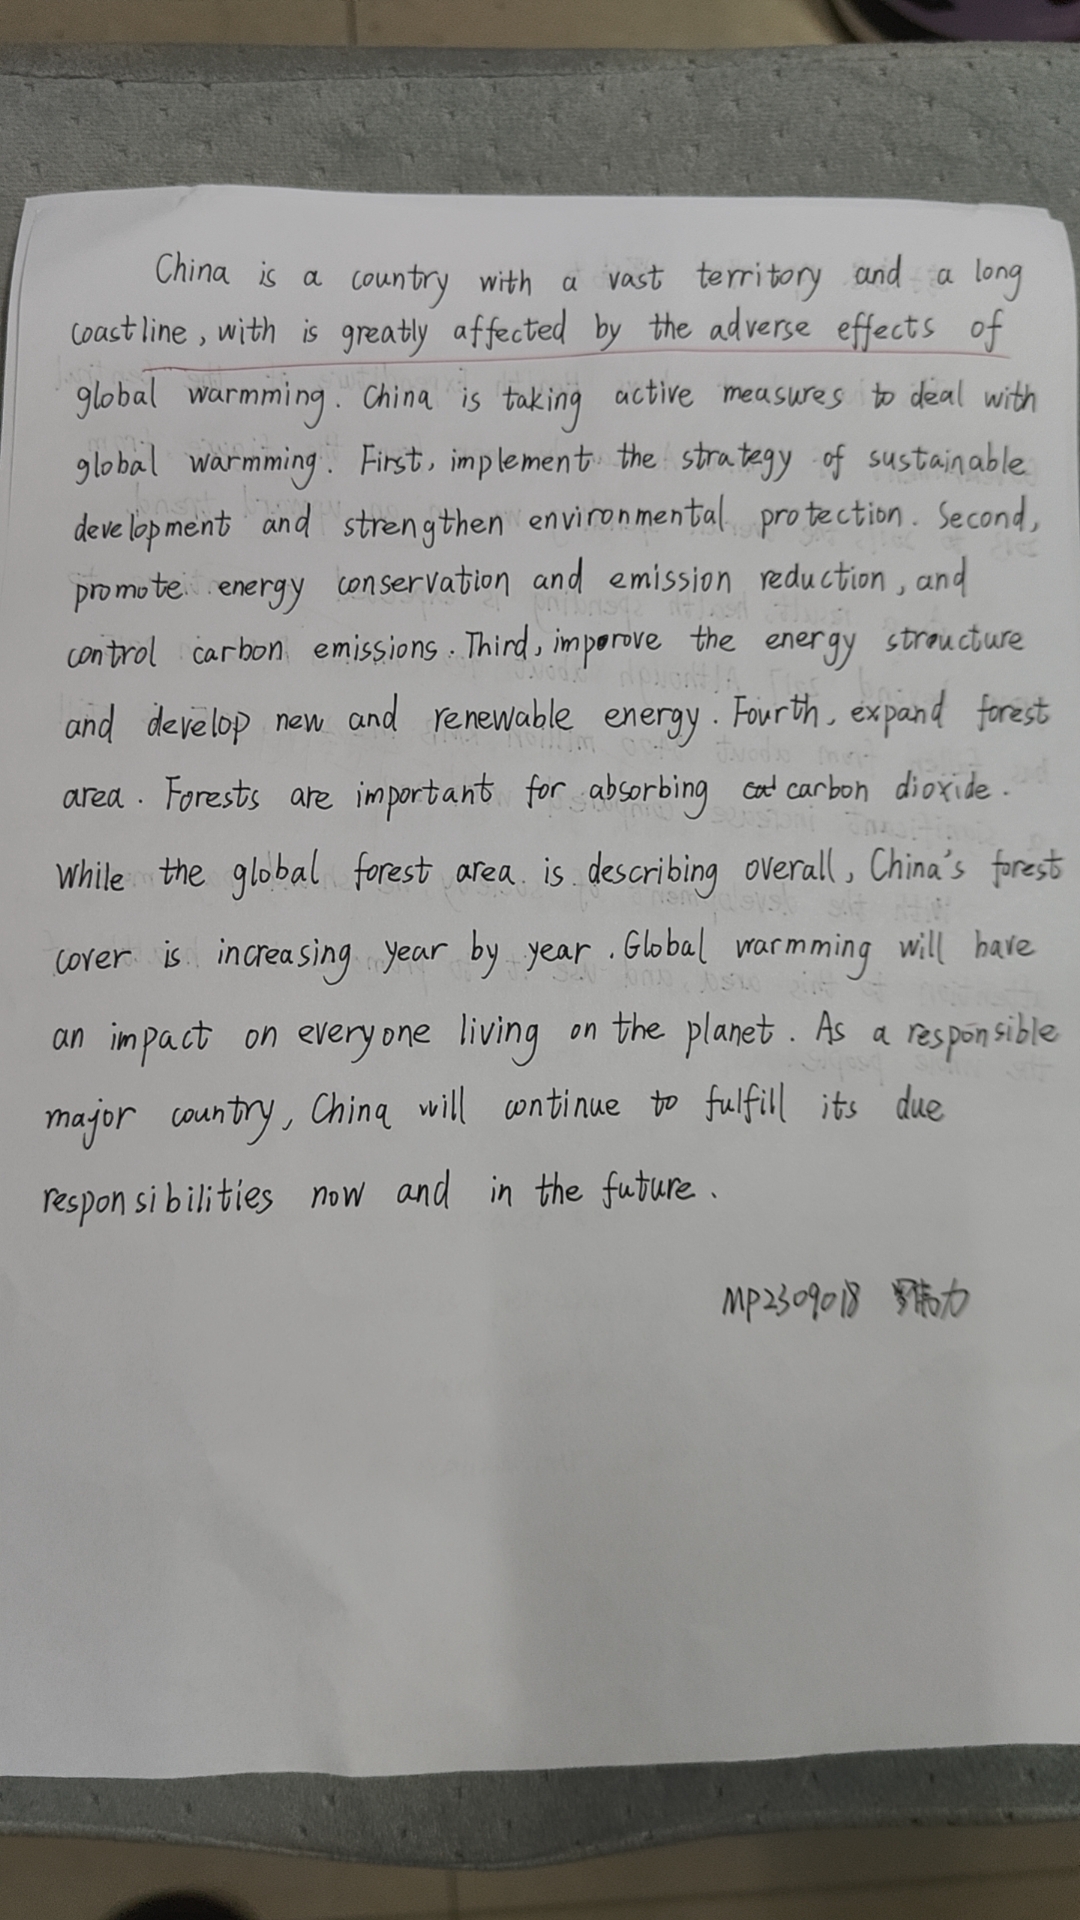 China is a country with a vast territory and a long
coastline, with is greatly affected by the adverse effects of
global warmming. China is taking active measures to deal with
global warmming. First, implement the strategy of sustainable
development and strengthen environmental protection. Second,
promote energy conservation and emission reduction, and
control carbon emissions. Third, imporove the energy strcucture
and develop new and renewable energy. Fourth, expand forest
area. Forests are important for absorbing carbon dioxide.
While the global forest area is describing overall, China's forest
cover is increasing year by year. Global warmming will have
an impact on everyone living on the planet. As a responsible
major country, China will continue to fulfill its due
responsibilities now and in the future.
MP2309018